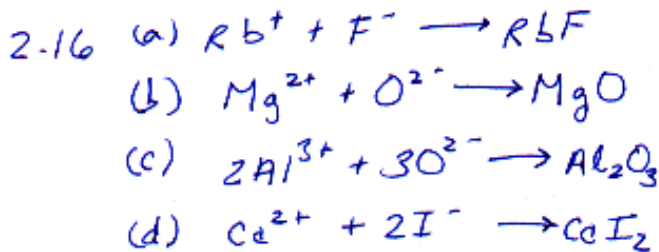 2.16 (a) Rb⁺ + F⁻ ⟶ RbF
(b) Mg²⁺ + O²⁻ ⟶ MgO
(c) 2Al³⁺ + 3O²⁻ ⟶ Al₂O₃
(d) Ca²⁺ + 2I⁻ ⟶ CaI₂